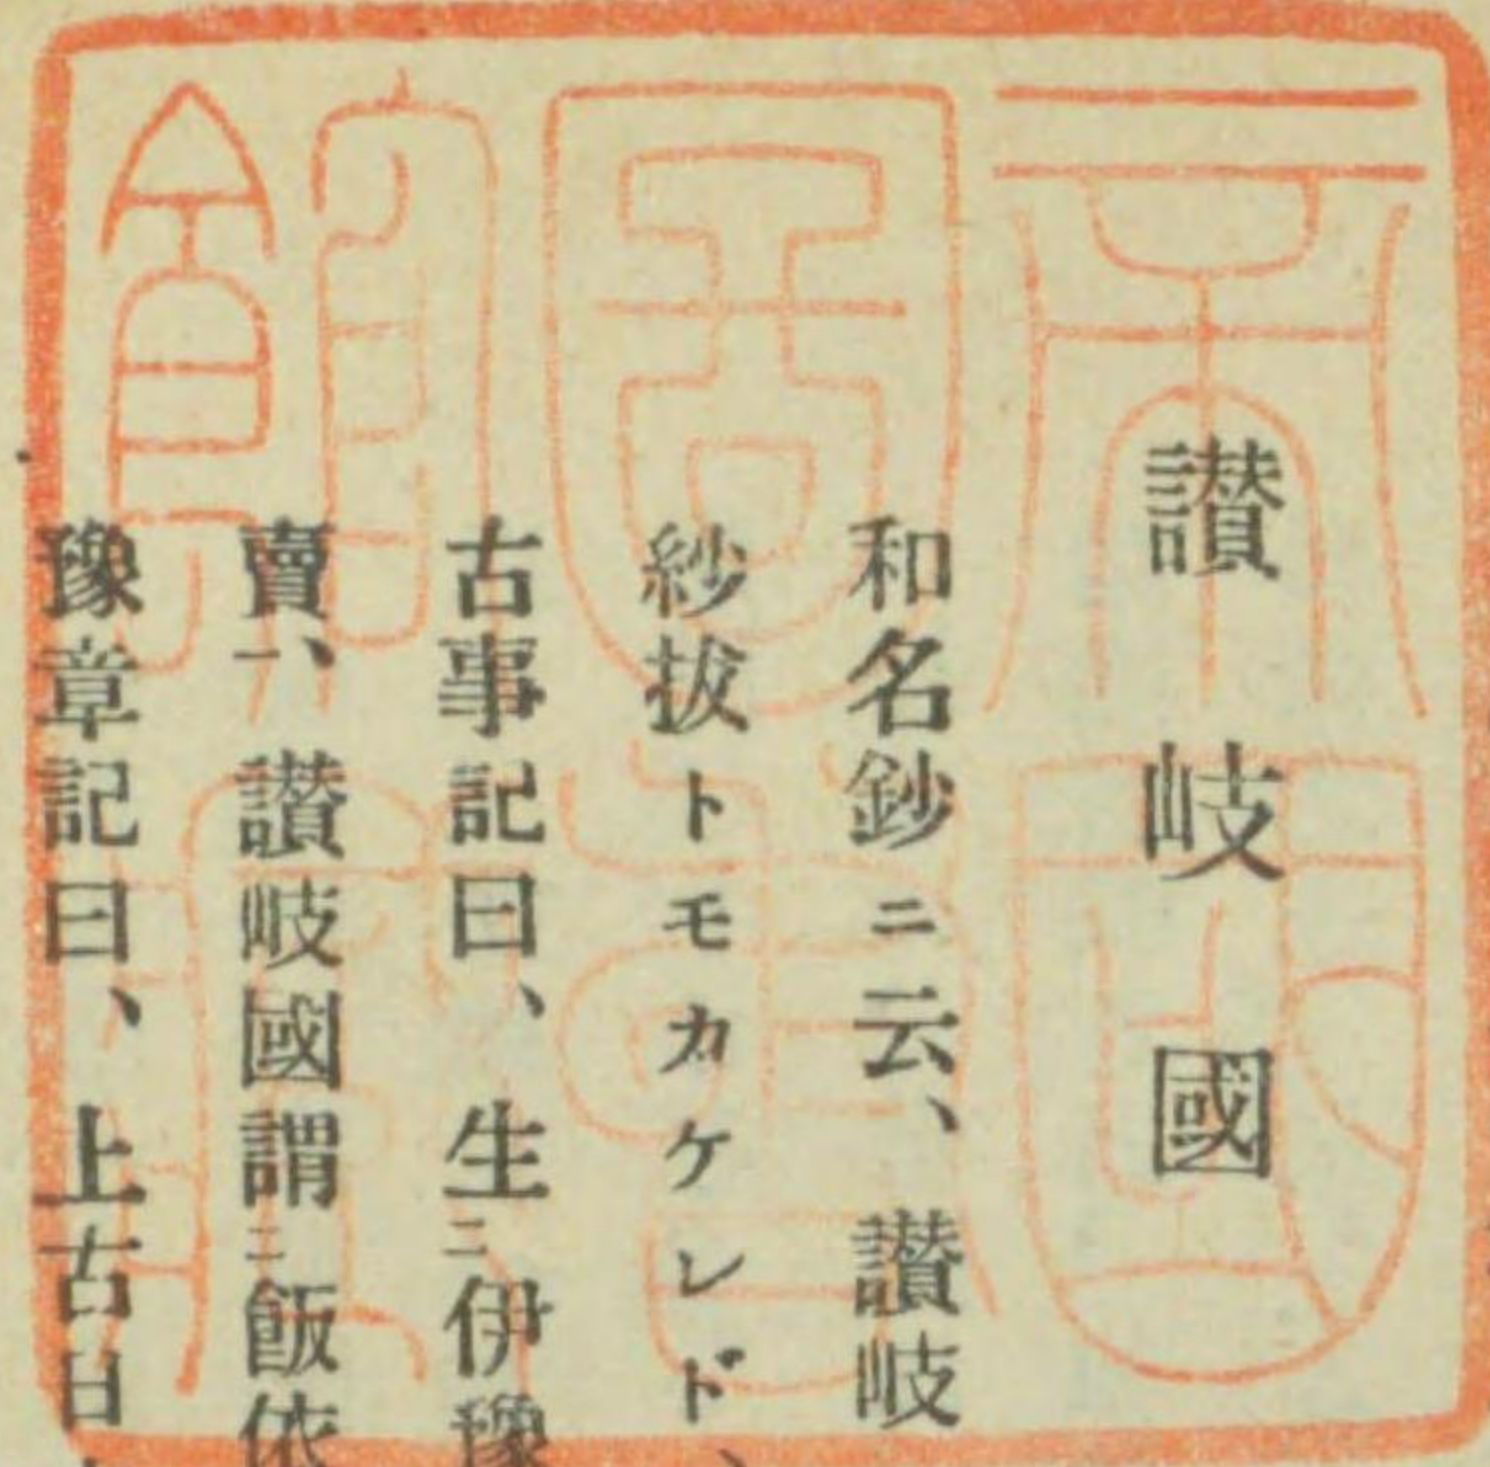 讃岐國
和名鈔ニ云、讃岐
紗拔トモカケレド、
古事記曰、生ニ伊豫
賣、一讃岐國謂ニ飯依
豫章記曰、上古日